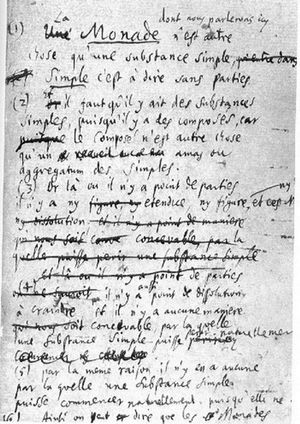 La dont nous parlerons icy
(1) Une Monade n'est autre
chose qu'une substance simple, qui entre dans
Simple c'est à dire sans parties
(2) Et il faut qu'il y ait des substances
simples, puisqu'il y a des composés, car
puisque le composé n'est autre chose
qu'un amas ou
aggregatum des simples.
(3) Or là ou il n'y a point de parties ny
il n'y a ny figure, ny etendue ny figure, et
ny dissolution et il n'y a point de maniere
soit concevable par la
quelle puisse perir une substance simple
et là ou il n'y a point de parties
(4) il n'y a point de dissolution
à craindre et il n'y a aucune maniere
soit concevable par la quelle
une substance simple puisse perir naturellement
(5) par la même raison il n'y en a aucune
par la quelle une substance simple
puisse commencer naturellement, puisqu'elle ne
(6) Ainsi on peut dire que les Monades